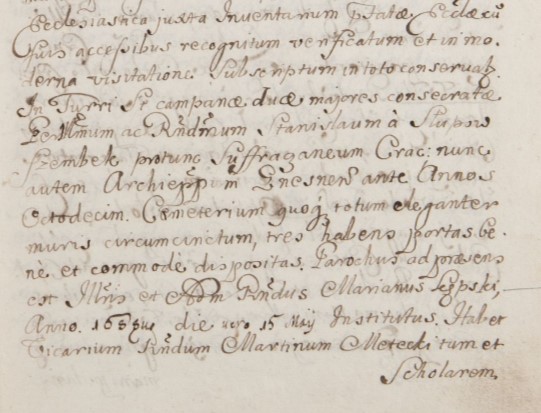 Ecclesiastica juxta Inventarium pr̄tatæ Ecclæ cū
suis accessibus recognitum verificatum et in mo-
derna visitatione Subscriptum in toto conservat.
In Turri St campanæ duæ majores consecratæ
Per Illmum ac Rndmum Stanislaum à Slupow
Szembek protunc Suffraganeum Crac: nunc
autem Archieppūm Gnesnen̄ ante Annos
Octodecim. Cæmeterium quoq totum eleganter
muris circumcinctum, tres habens portas be-
nè et commodè dispositas. Parochus ad præsens
est Illris et Adm Rndus Marianus Lypski,
Anno 168 die vero 15 Maij Institutus. Habet
Vicarium Rndum Martinum Metecki tum et
Scholarem,